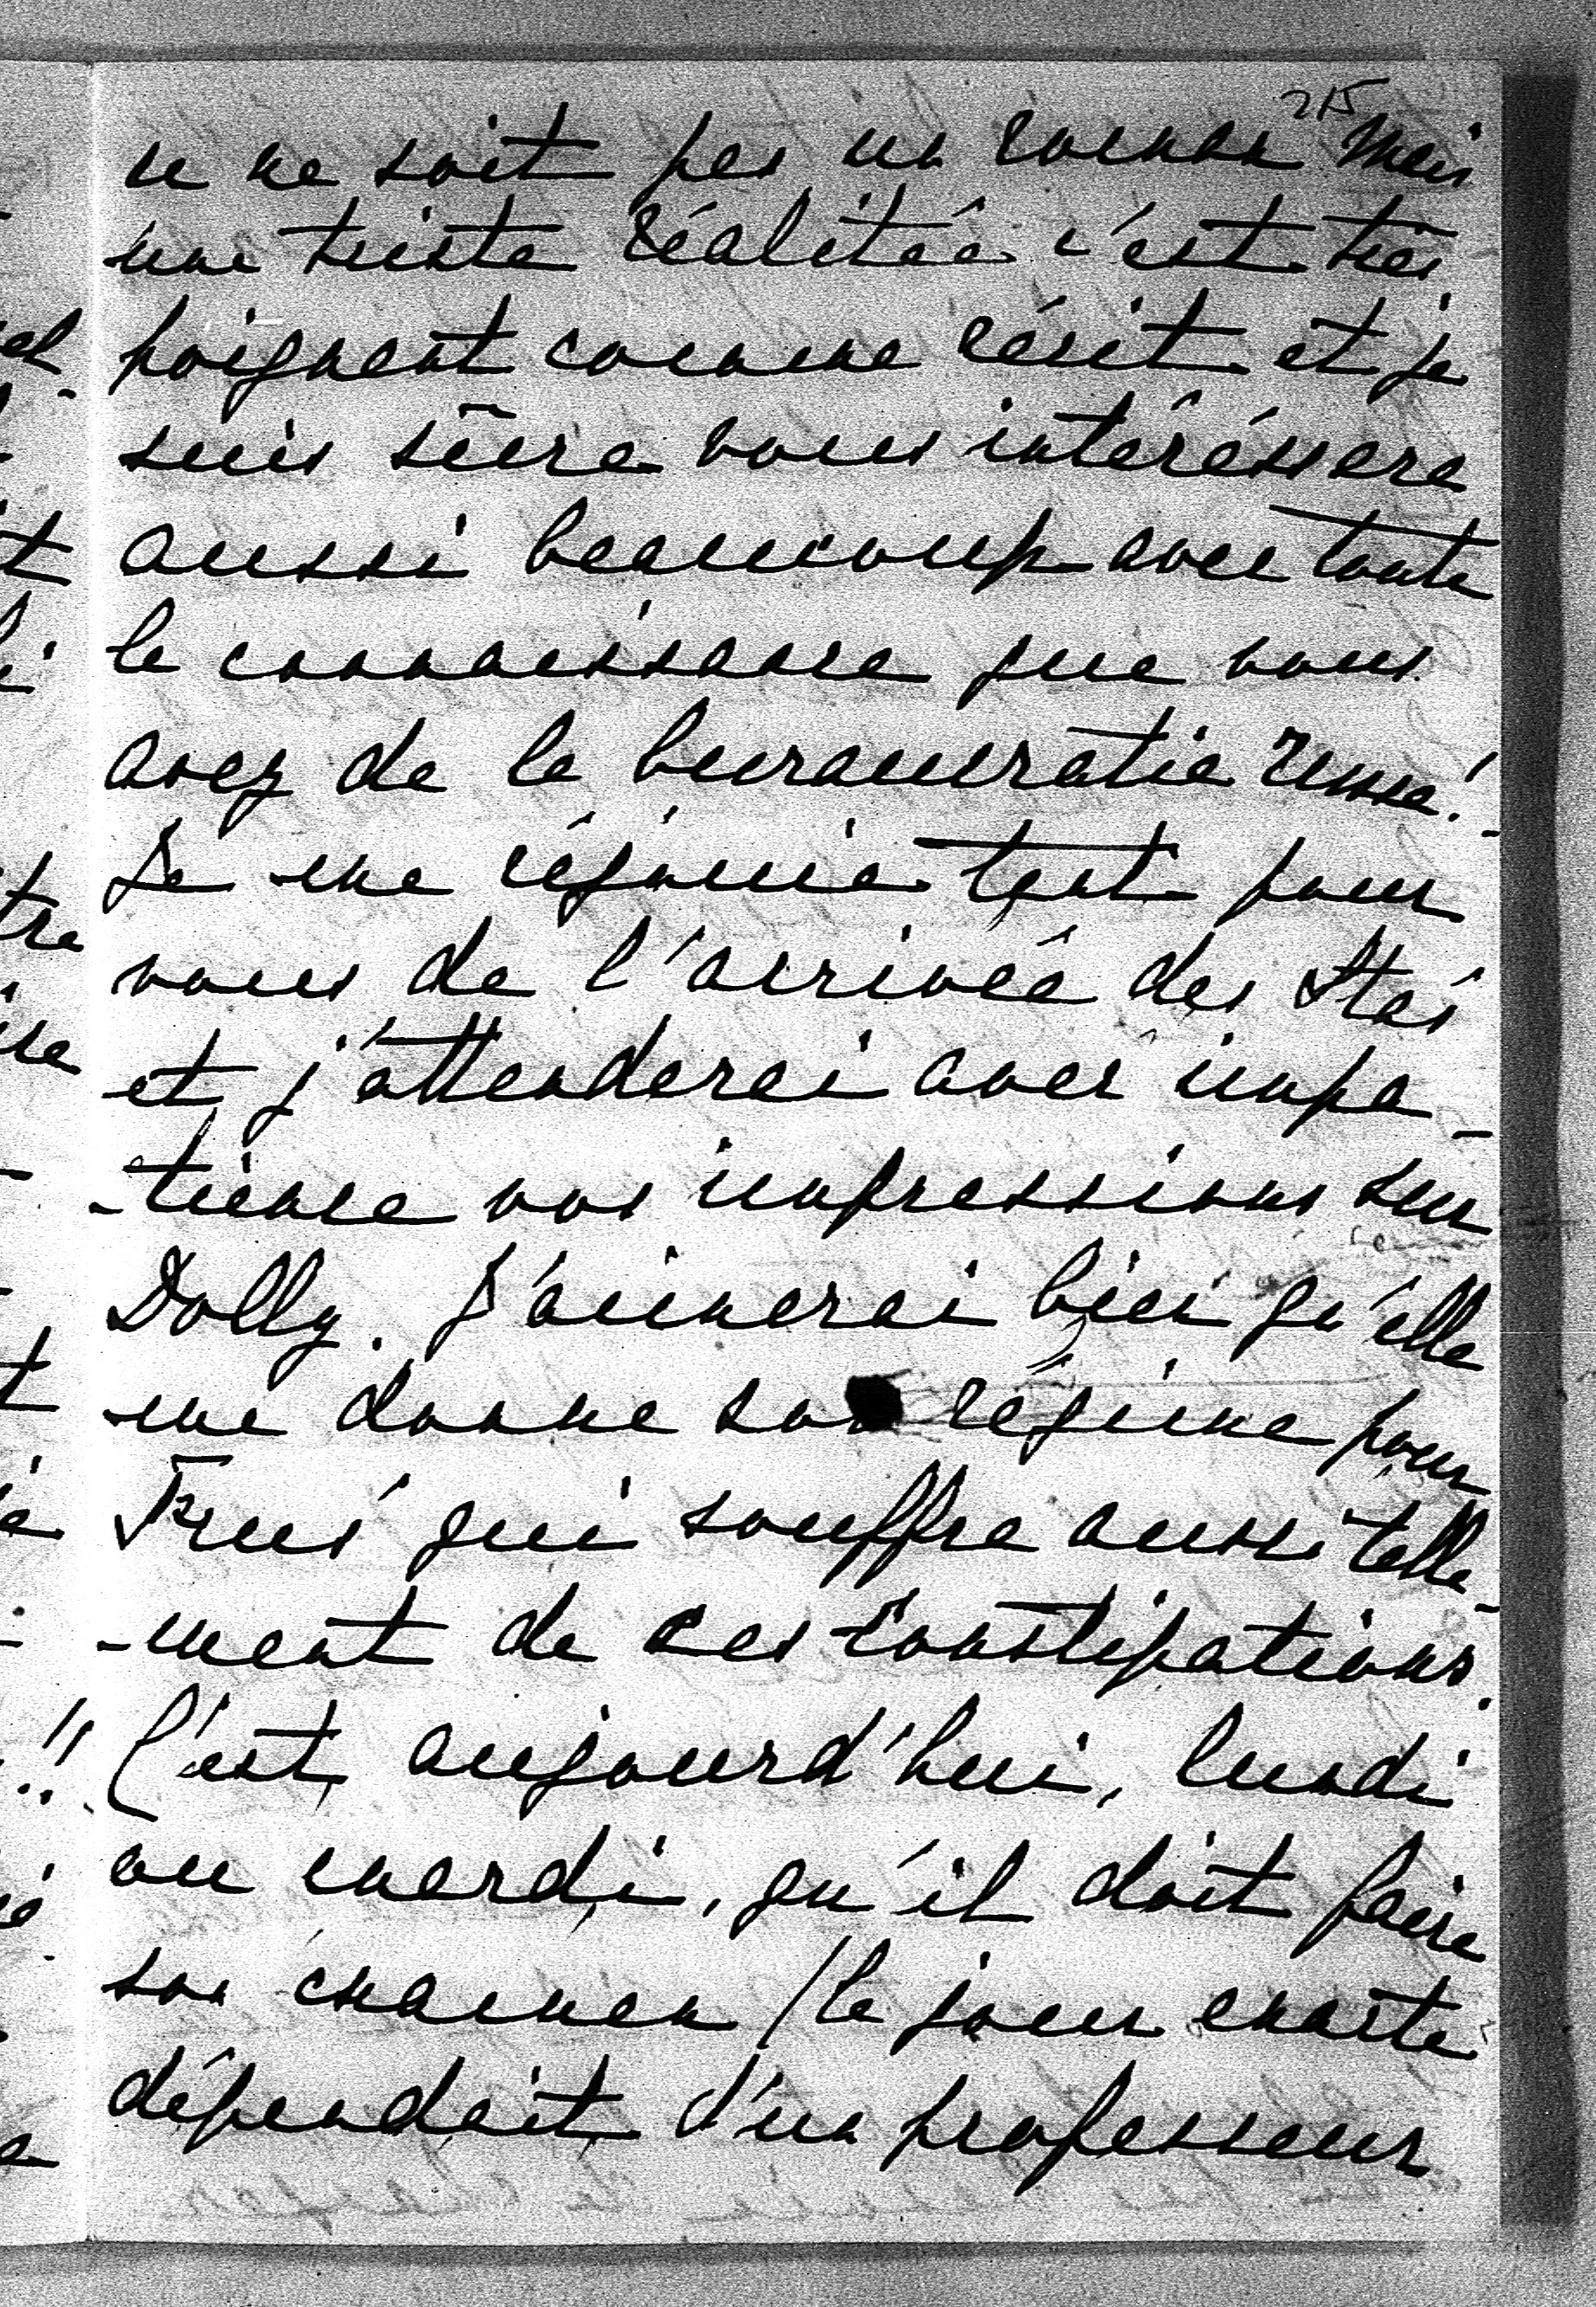 215
ce ne soit pas un roman mais
une triste réalitée c'est très
poignant comme récit et je
suis sûre vous intéréssera
aussi beaucoup avec toute
la connaissance que vous
avez de la bureaucratie russe!
Je me réjouie tant pour
vous de l'arrivée des
et j'attenderai avec impa-
-tience vos impressions sur
Dolly. J'aimerai bien qu'elle
me donne son régime pour
qui souffre aussi telle-
-ment de ces constipations.
C'est aujourd'hui, lundi
ou mardi, qu'il doit faire
son examen (le jour exacte
dépendait d'un professeur